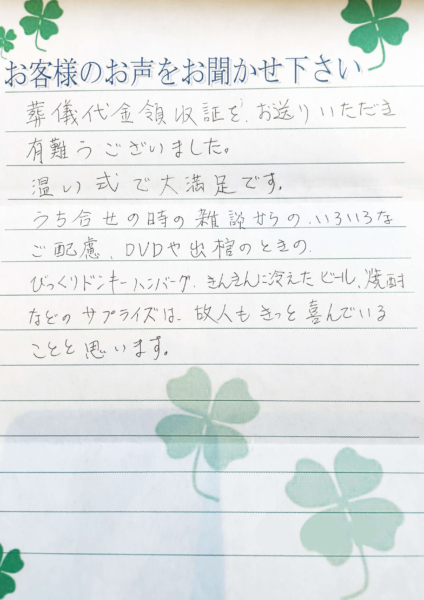 お客様のお声をお聞かせ下さい
葬儀代金領収証を、お送りいただき
有難うございました。
温い式で大満足です。
うち合せの時の雑談からの、いろいろな
ご配慮、DVDや出棺のときの
びっくりドンキーハンバーグ、きんきんに冷えたビール、焼酎
などのサプライズは、故人もきっと喜んでいる
ことと思います。